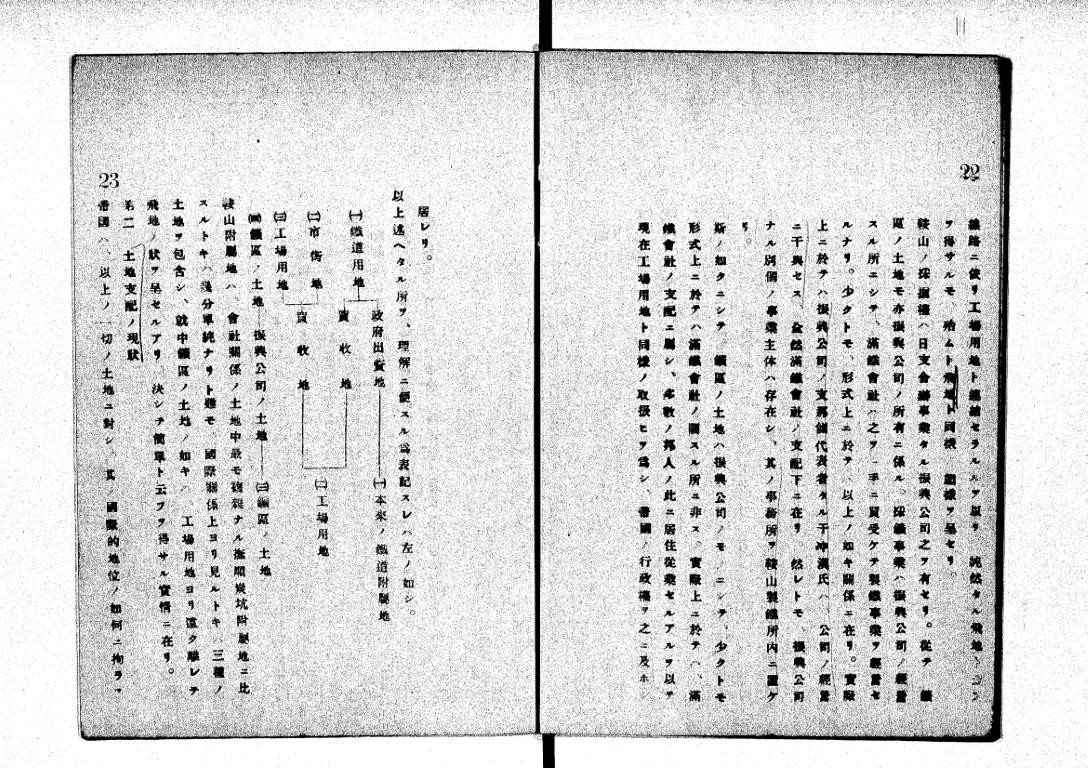 22
鐵路ニ依リ工場用地ト連結セラルルヲ以リ 純然タル飛地トコン
ヲ得サルモ、殆ムト飛地ト同樣 觀樣ヲ呈セリ。
鞍山ノ採掘權ハ日支合辦事業タル振興公司之ヲ有セリ。從テ、鑛
區ノ土地モ亦振興公司ノ所有ニ係ル。採鑛事業ハ振興公司ノ經營
スル所ニシテ、滿鐵會社ハ之ヲ一手ニ買受ケテ製鐵事業ヲ經營セ
ルナリ。少クトモ、形式上ニ於テハ以上ノ如キ關係ニ在リ。實際
上ニ於テハ振興公司ノ支那側代表者タル于冲漢氏ハ、公司ノ經營
ニ干與セス、全然滿鐵會社ノ支配下ニ在リ 然レトモ、振興公司
ナル別個ノ事業主体ハ存在シ、其ノ事務所ヲ鞍山製鐵所內ニ置ケ
リ。
斯ノ如クニシテ、鑛區ノ土地ハ振興公司ノモノニシテ、少クトモ
形式上ニ於テハ滿鐵會社ノ關スル所ニ非ス。實際上ニ於テハ、滿
鐵會社ノ支配ニ屬シ、多數ノ邦人ノ此ニ居住從業セルアルヲ以テ
現在工場用地ト同樣ノ取扱ヒヲ爲シ、帝國ノ行政權ヲ之ニ及ホシ
23
居レリ。
以上述ヘタル所ヲ、理解ニ便スル爲表記スレハ左ノ如シ。
㈠鐵道用地 政府出資地 ㈠本來ノ鐵道附屬地
買收地
㈡市街地
買收地 ㈡工場用地
㈢工場用地
㈣鑛區ノ土地 振興公司ノ土地 ㈢鑛區ノ土地
鞍山附屬地ハ、會社關係ノ土地中最モ複雜ナル撫順炭坑附屬地ニ比
スルトキハ幾分單純ナリト雖モ、國際關係上ヨリ見ルトキハ三種ノ
土地ヲ包含シ、就中鑛區ノ土地ノ如キハ、工場用地ヨリ遠ク離レテ
飛地ノ狀ヲ呈セルアリ、決シテ簡單ト云フヲ得サル實情ニ在リ。
第二 土地支配ノ現狀
帝國ハ、以上ノ一切ノ土地ニ對シ、其ノ國際的地位ノ如何ニ拘ラス